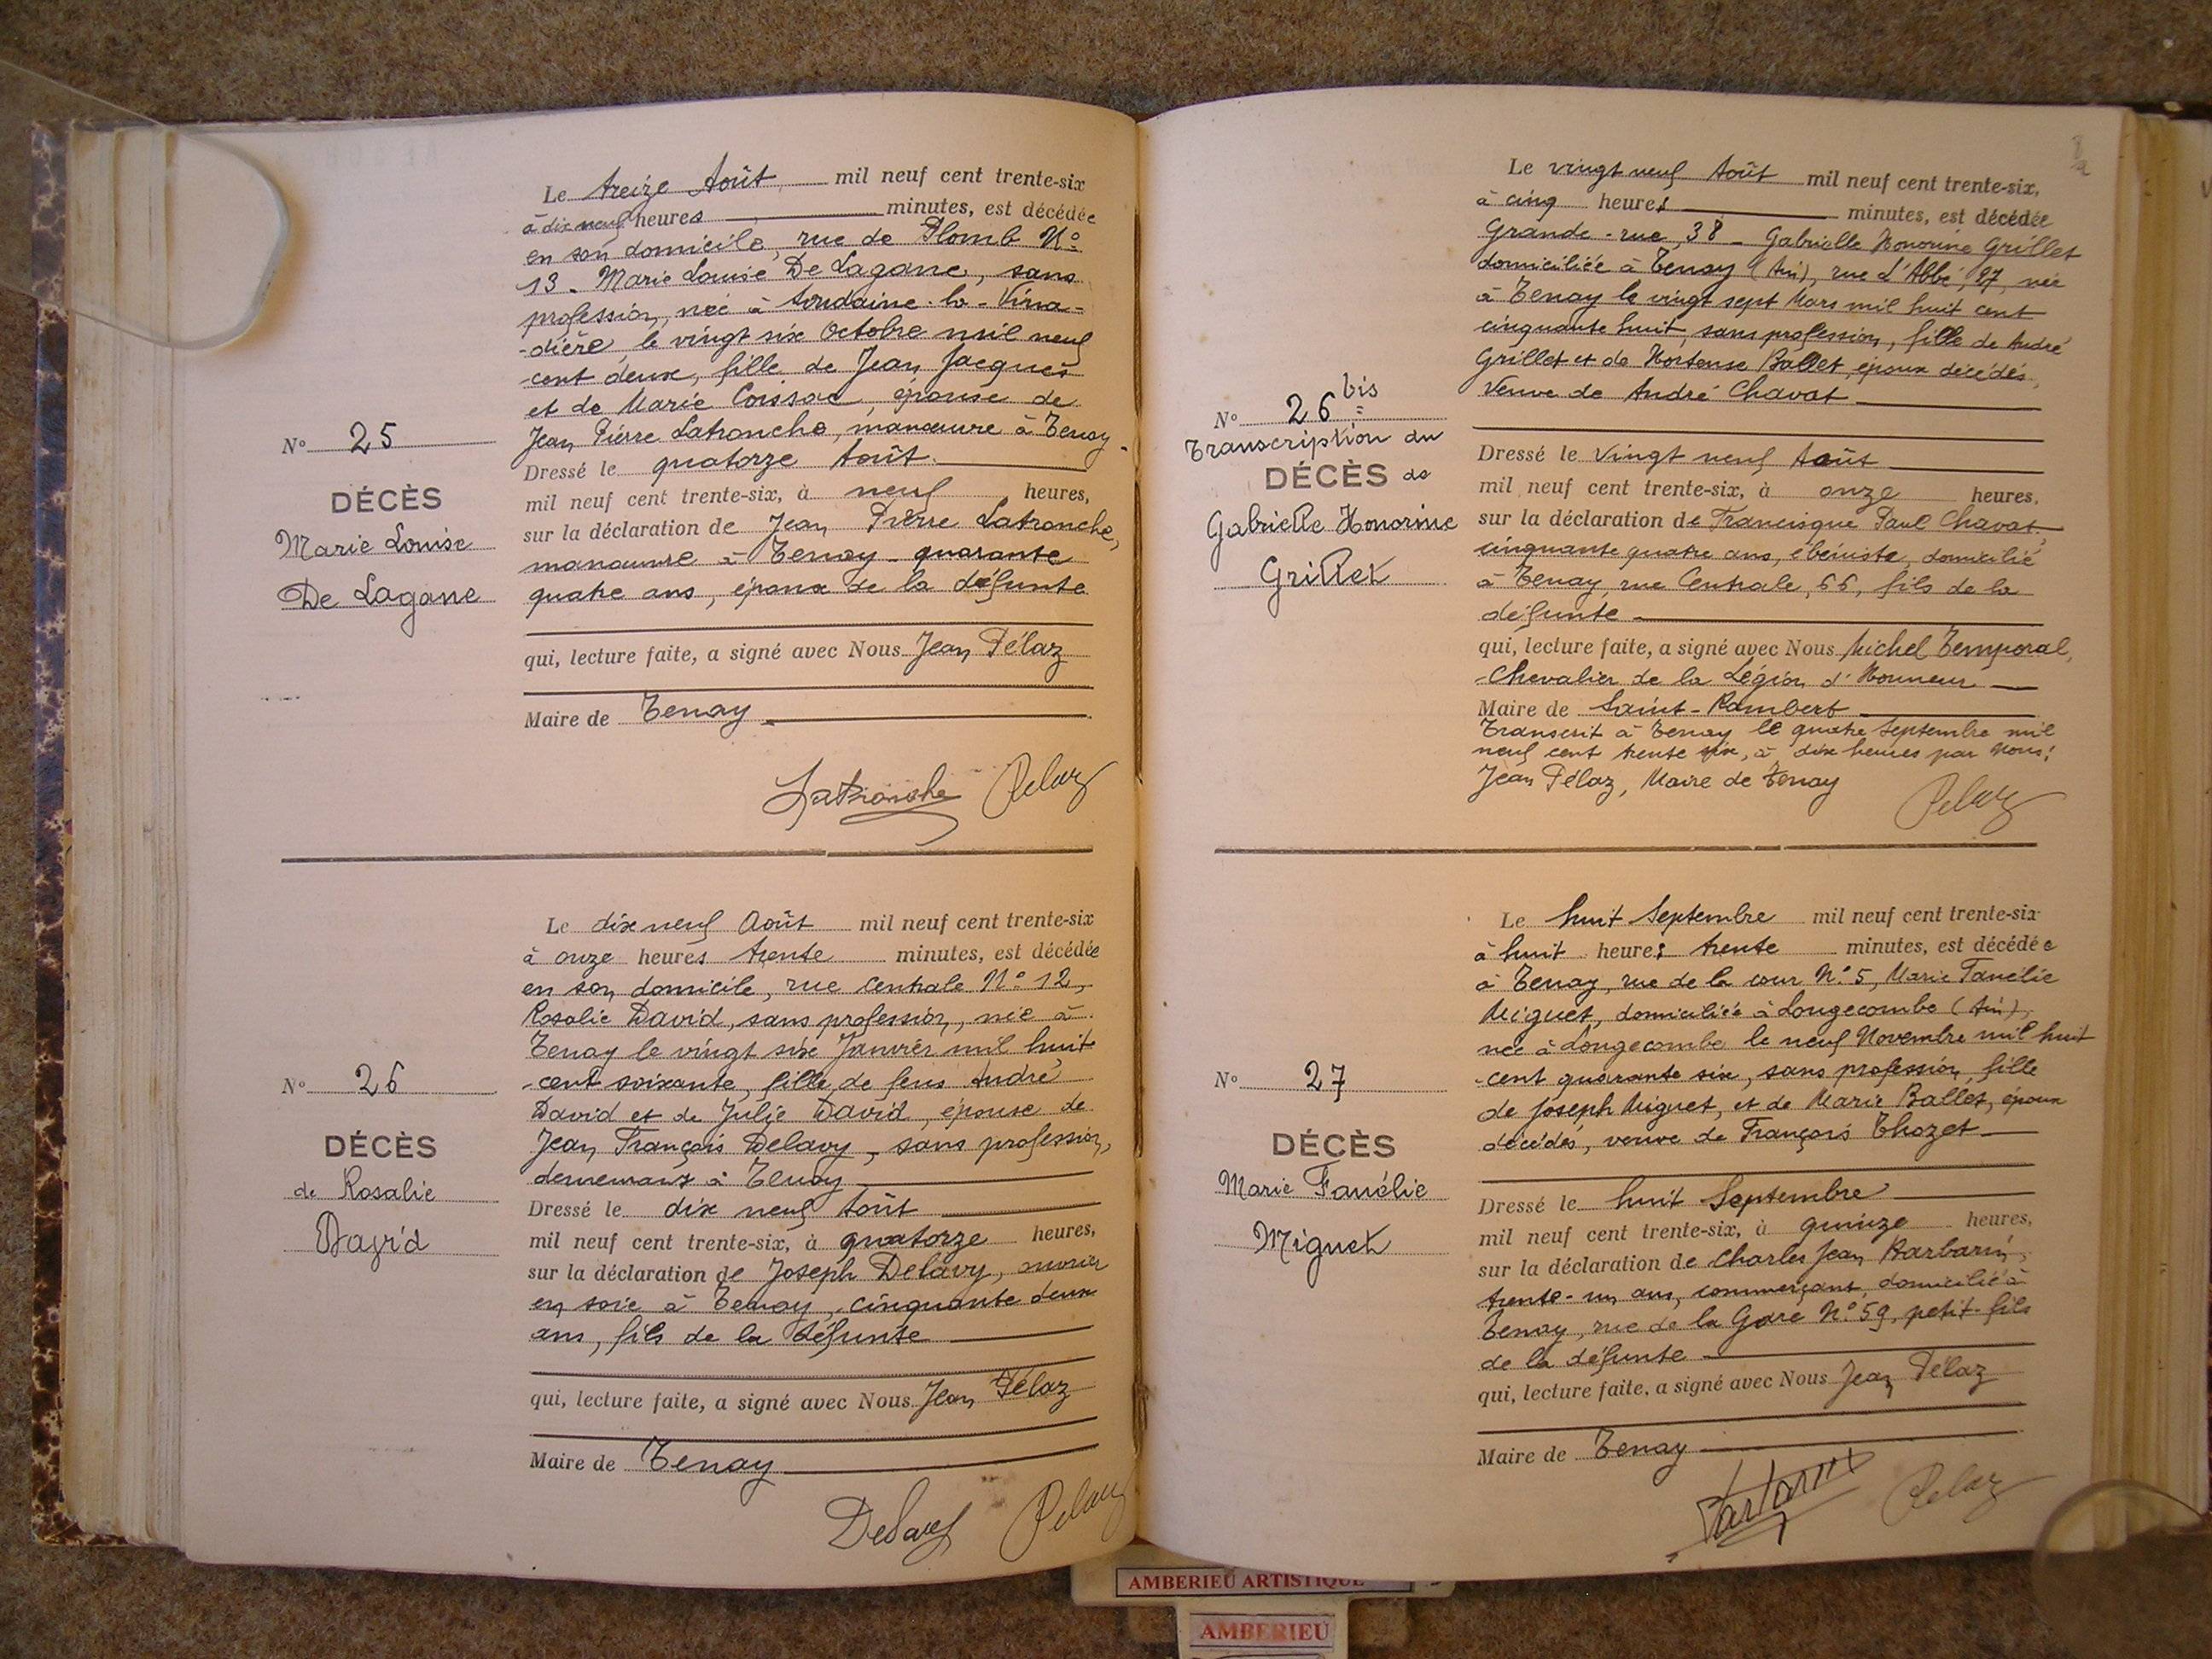 Le treize Août mil neuf cent trente-six
à dix neuf heures minutes, est décédée
en son domicile, rue de Plomb N°
13 - Marie Louise De Lagane, sans
profession, née à Soudaine-la-Vina-
-dière le vingt six Octobre mil neuf
-cent deux, fille de Jean Jacques
et de Marie Coissac, épouse de
Jean Pierre Latronche, manœuvre à Tenay -
Dressé le quatorze Août
mil neuf cent trente-six, à neuf heures,
sur la déclaration de Jean Pierre Latronche,
manœuvre à Tenay - quarante
quatre ans, époux de la défunte
qui, lecture faite, a signé avec Nous Jean Pélaz
Maire de Tenay
Latronche Pelaz
N° 25
DÉCÈS
Marie Louise
De Lagane
Le dix neuf Août mil neuf cent trente-six
à onze heures trente minutes, est décédée
en son domicile, rue Centrale N° 12,
Rosalie David, sans profession, née à
Tenay le vingt six Janvier mil huit
-cent soixante, fille de feus André
David et de Julie David, épouse de
Jean François Delavy, sans profession,
demeurant à Tenay
Dressé le dix neuf Août
mil neuf cent trente-six, à quatorze heures,
sur la déclaration de Joseph Delavy, ouvrier
en soie à Tenay, cinquante deux
ans, fils de la défunte
qui, lecture faite, a signé avec Nous Jean Pélaz
Maire de Tenay
Delavy Pelaz
N° 26
DÉCÈS
de Rosalie
David
Le vingt neuf Août mil neuf cent trente-six,
à cinq heures minutes, est décédée
Grande-rue, 38 - Gabrielle Honorine Grillet
domiciliée à Tenay (Ain), rue L'Abbé, 27, née
à Tenay le vingt sept Mars mil huit cent
cinquante huit, sans profession, fille de André
Grillet et de Hortense Ballet, époux décédés,
Veuve de André Chavat
Dressé le Vingt neuf Août
mil neuf cent trente-six, à onze heures,
sur la déclaration de Francisque Paul Chavat,
cinquante quatre ans, ébéniste, domicilié
à Tenay, rue Centrale, 66, fils de la
défunte
qui, lecture faite, a signé avec Nous Michel Temporal,
-Chevalier de la Légion d'Honneur
Maire de Saint-Rambert
Transcrit à Tenay le quatre Septembre mil
neuf cent trente six, à dix heures par Nous:
Jean Pélaz, Maire de Tenay
Pelaz
N° 26 bis
Transcription du
DÉCÈS de
Gabrielle Honorine
Grillet
Le huit Septembre mil neuf cent trente-six
à huit heures trente minutes, est décédée
à Tenay, rue de la cour N° 5, Marie Fanélie
Miguet, domiciliée à Longecombe (Ain),
née à Longecombe le neuf Novembre mil huit
-cent quarante six, sans profession, fille
de Joseph Miguet, et de Marie Ballet, époux
décédés, veuve de François Thozet
Dressé le huit Septembre
mil neuf cent trente-six, à quinze heures,
sur la déclaration de Charles Jean Barbarin,
trente-un ans, commerçant, domicilié à
Tenay, rue de la Gare N° 59, petit-fils
de la défunte
qui, lecture faite, a signé avec Nous Jean Pélaz
Maire de Tenay
Barbarin Pelaz
N° 27
DÉCÈS
Marie Fanélie
Miguet
AMBERIEU ARTISTIQUE
AMBERIEU